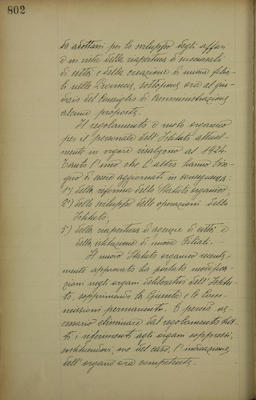 802
da adottare per lo sviluppo degli affari
e in vista della riapertura di
di città e della creazione di nuove filiali
nelle Provincie, sottopone ora al giudizio
del Consiglio di Amministrazione
alcune proposte.
Il regolamento e ruolo organico
per il personale dell'Istituto attualmente
in vigore risalgono al 1924.
Tanto l'uno che l'altro hanno bisogno
di essere aggiornati in conseguenza:
1°) della riforma dello Statuto organico;
2°) dello sviluppo delle operazioni dello
Istituto;
3°) della riapertura di agenzie di città e
della istituzione di nuove Filiali.
Il nuovo Statuto organico recentemente
approvato ha portato modificazioni
negli organi deliberativi dell'Istituto,
sopprimendo la Giunta e le Commissioni
permanenti. È perciò necessario
eliminare dal regolamento
i riferimenti agli organi soppressi,
sostituendovi, ove del caso, l'indicazione
dell'organo ora competente.